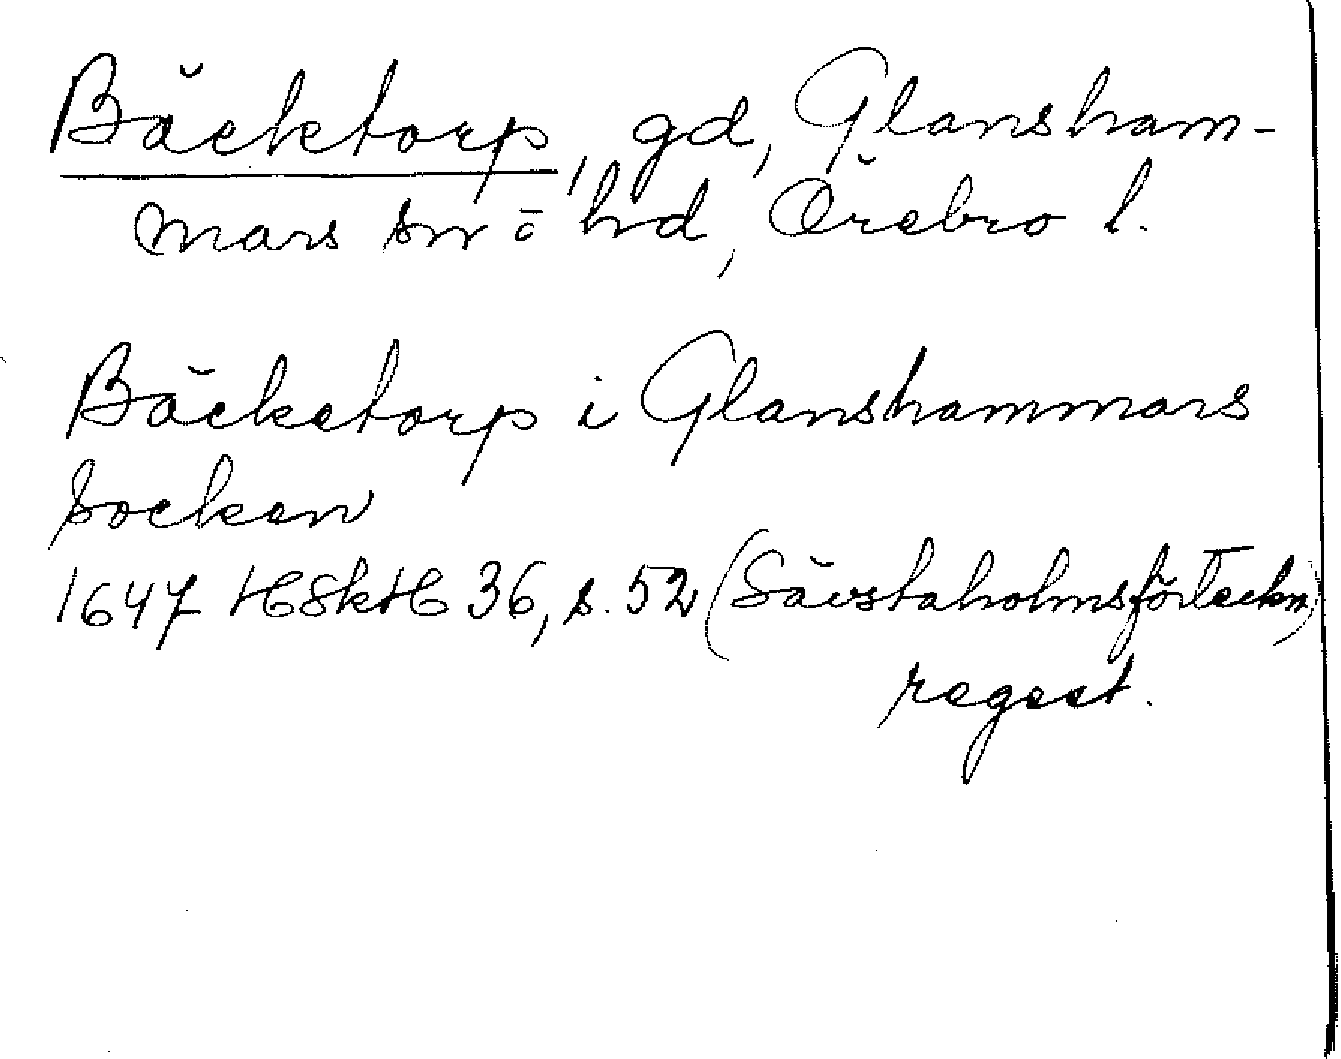 Bäcktorp, gd, Glansham-
mars sn o hd, Örebro l.
Bäcketorp i Glanshammars
Socken
1647 HSkH 36, s. 52 (Sävstaholmsförteckn)
regest.